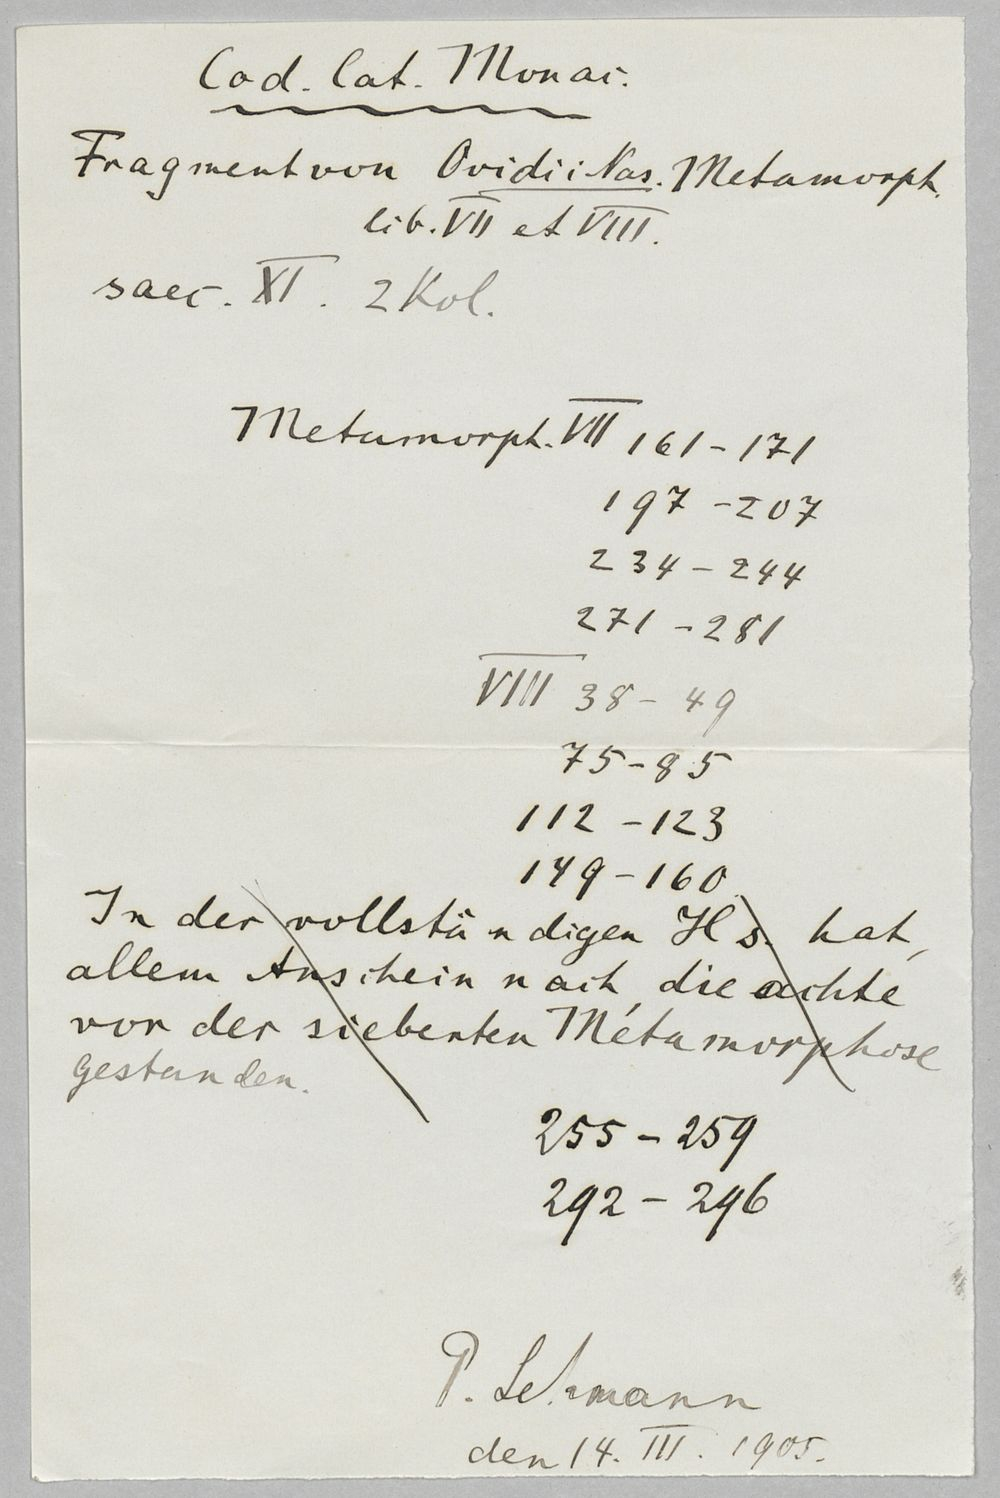 Cod. Lat. Monac.
Fragment von Ovidii Nas. Metamorph.
lib. VII et VIII.
saec. XI. 2 Kol.
Metamorph. VII 161-171
197-207
234-244
271-281
VIII 38-49
75-85
112-123
149-160
In der vollständigen Hs. hat,
allem Anschein nach, die achte
vor der siebenten Metamorphose
gestanden.
255-259
292-296
P. Lehmann
den 14. III. 1905.